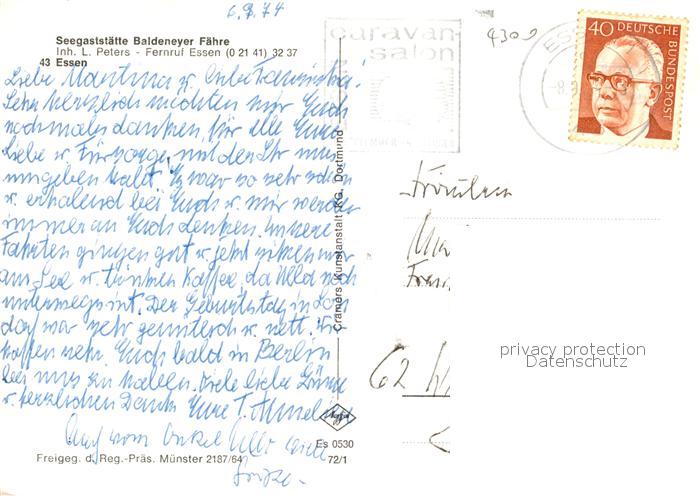 6.9.74
Seegaststätte Baldeneyer Fähre
Inh. L. Peters - Fernruf Essen (0 21 41) 32 37
43 Essen
caravan-
salon
4300
ES
-8.
40 DEUTSCHE
BUNDESPOST
Liebe Martina u.
Sehr herzlich möchten wir Euch
nochmals danken, für alle Eure
Liebe u. Fürsorge, mit der Ihr uns
umgeben habt. Es war so sehr schön
u. erholend bei Euch u. wir werden
immer an Euch denken. Unsere
Fahrten gingen gut u. jetzt sitzen wir
am See u. trinken Kaffee, da Ulld noch
unterwegs ist. Der Geburtstag in
dorf war sehr genussreich u. nett. Wir
hoffen sehr, Euch bald in Berlin
bei uns zu haben. Viele liebe Grüsse
u. herzlichen Dank Eure T.
Auch vom Onkel viele
Grüsse.
Cramers Kunstanstalt KG, Dortmund
Fräulein
62
privacy protection
Datenschutz
Es 0530
72/1
Freigeg. d. Reg.-Präs. Münster 2187/64